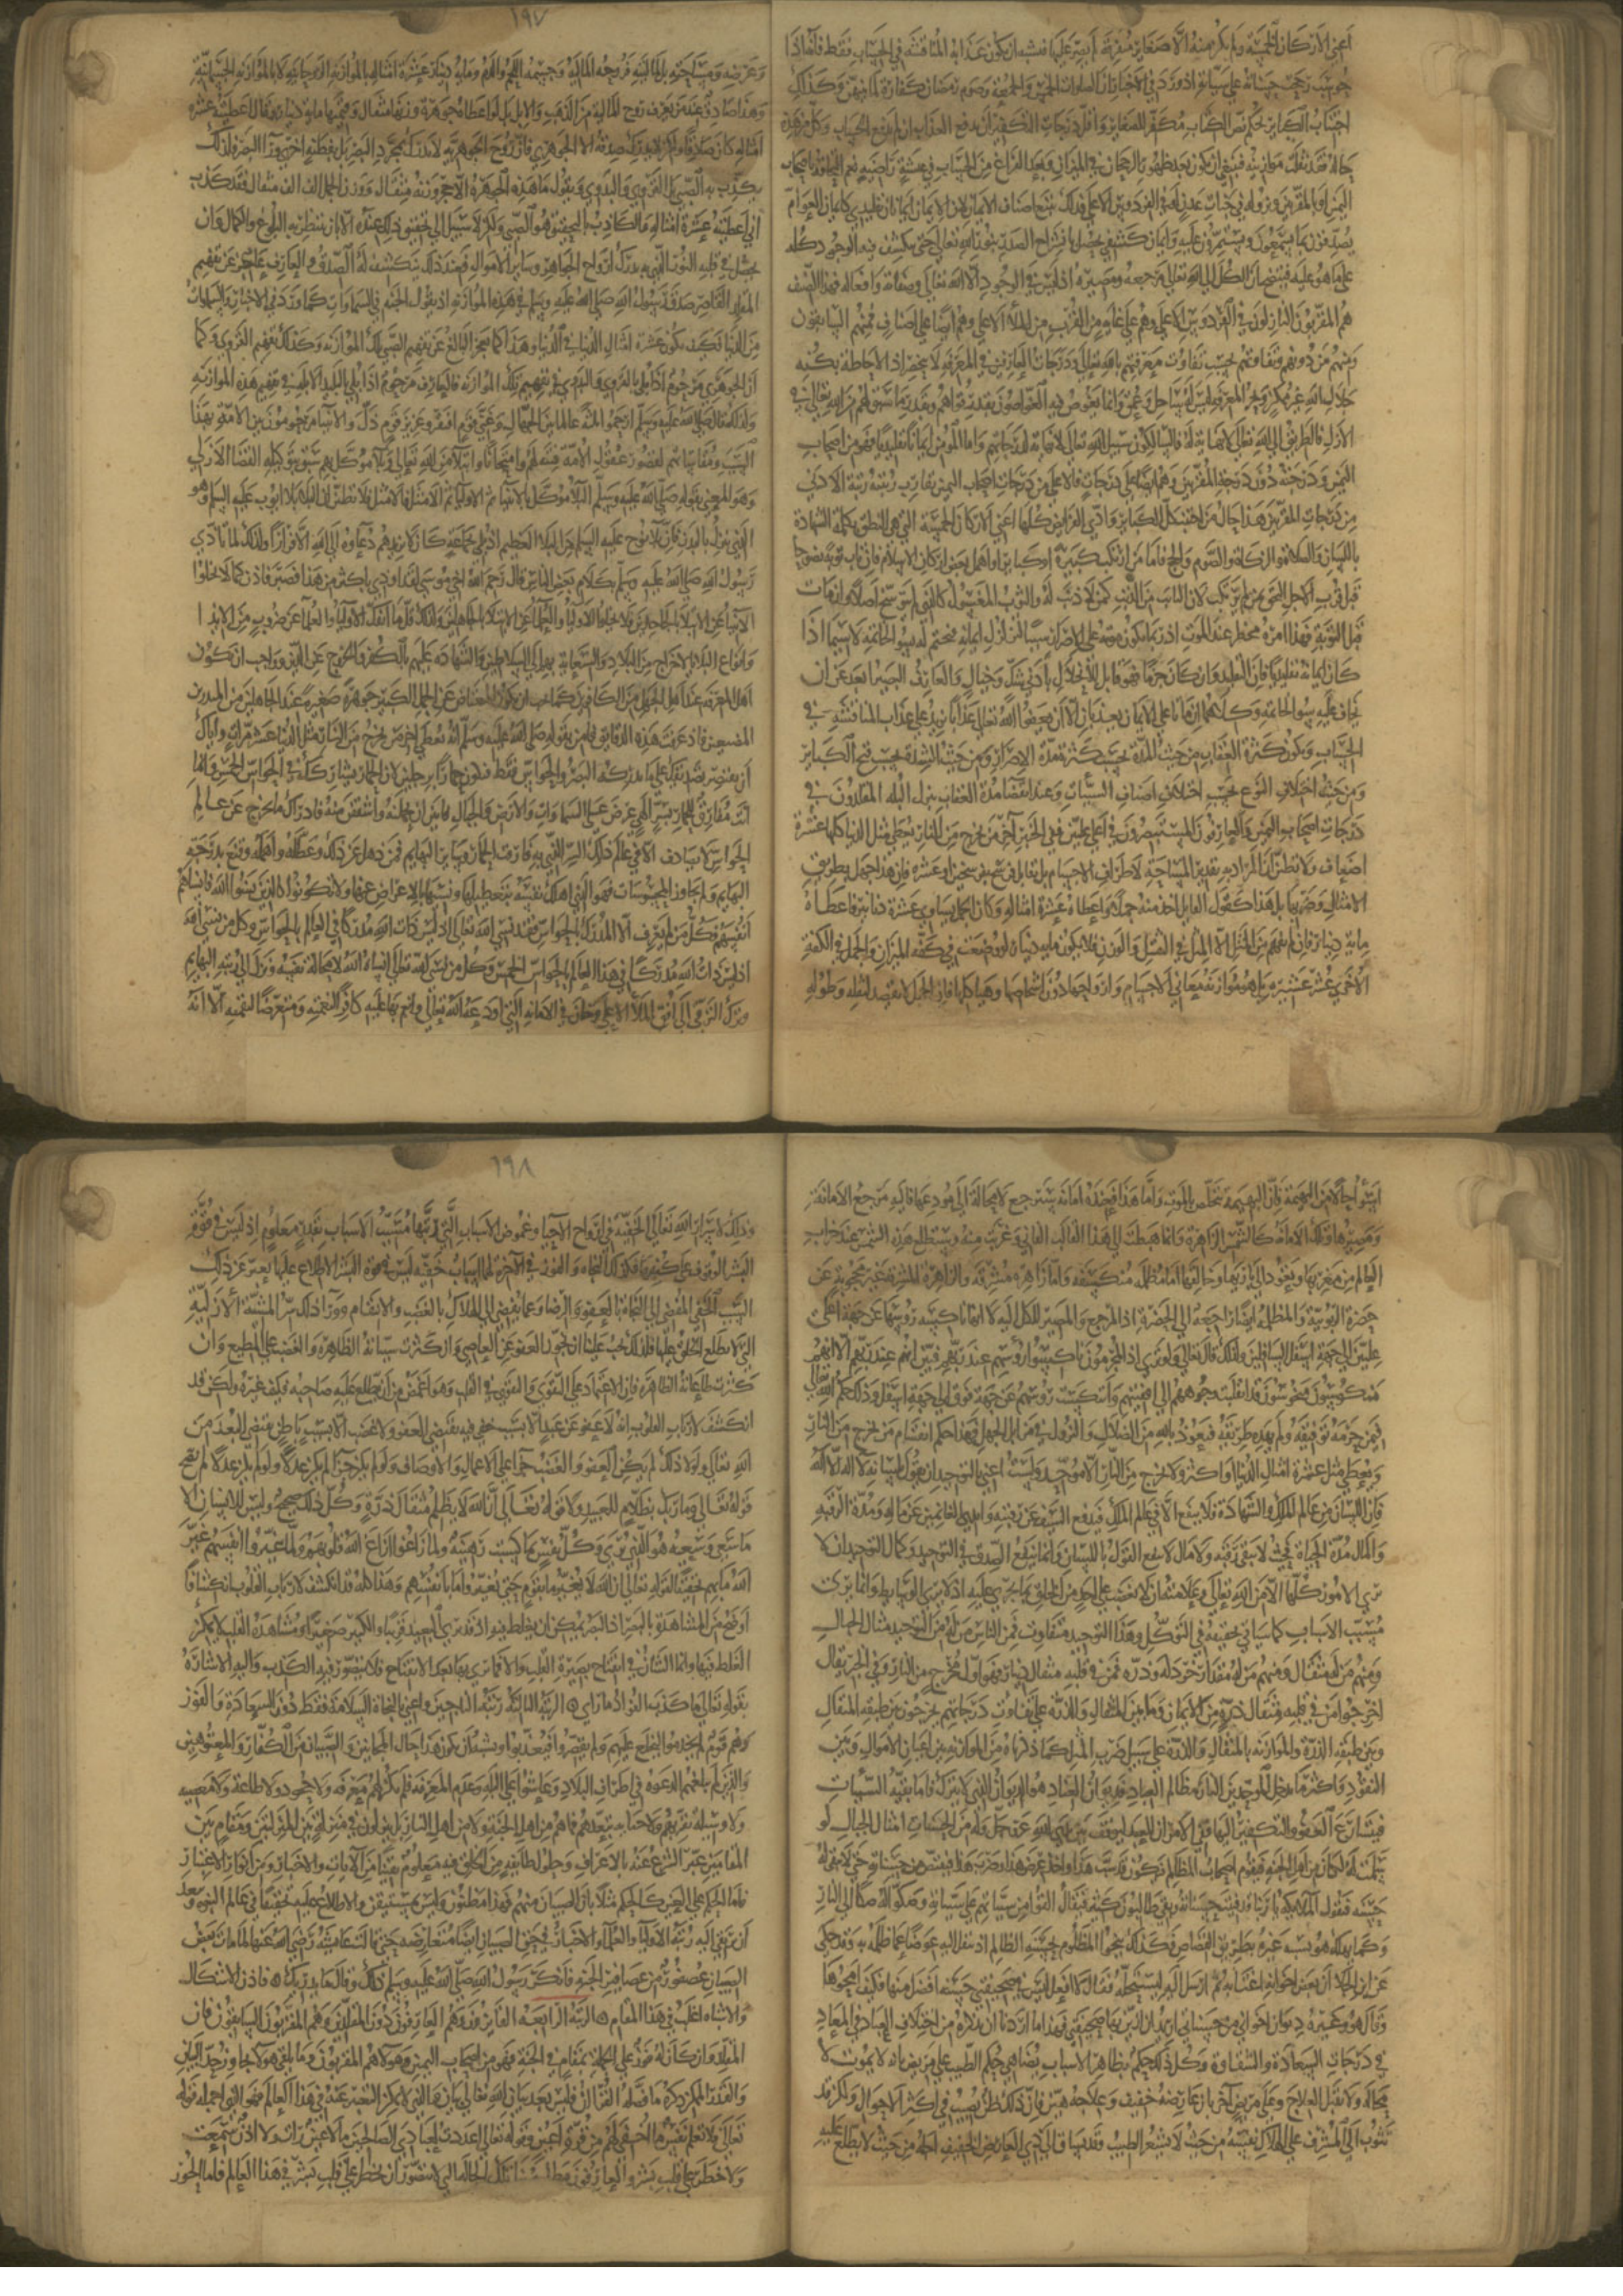 اعني الاركان الخمسة ولم يكن منه الا صغاير متفرقة لم يصر عليها فيشبه ان يكون عذابه المناقشة في الحساب فقط فانه اذا
حوسب رجحت حسناته على سيآته اذ ورد في الاخبار ان الصلوات الخمس والجمعة وصوم رمضان كفارة لما بينهن وكذلك
اجتناب الكباير بحكم نص الكتاب مكفر للصغاير واقل درجات التكفير ان يدفع العذاب ان لم يدفع الحساب وكل من هذا
حاله فقد ثقلت موازينه فينبغي ان يكون بعد ظهور الرجحان في الميزان وبعد الفراغ من الحساب في عيشة راضية نعم التحاقه باصحاب
اليمين او بالمقربين ونزوله في جنات عدن او في الفردوس الاعلى فكذلك يتبع اصناف الايمان لان الايمان ايمانان تقليدي كايمان العوام
يصدقون بما يسمعون ويستمرون عليه وايمان كشفي يحصل بانشراح الصدر بنور الله تعالى حتى ينكشف فيه الوجود كله
على ما هو عليه فيتضح ان الكل الى الله تعالى مرجعه ومصيره اذ ليس في الوجود الا الله تعالى وصفاته وافعاله فهذا الصنف
هم المقربون النازلون في الفردوس الاعلى وهم على غاية من القرب من الملأ الاعلى وهم ايضا على اصناف فمنهم السابقون
ومنهم من دونهم وتفاوتهم بحسب تفاوت معرفتهم بالله تعالى ودرجات العارفين في المعرفة لا تنحصر اذ الاحاطة بكنه
جلال الله غير ممكن وبحر المعرفة ليس له ساحل وعمق وانما يغوص فيه الغواصون بقدر قواهم وبقدر ما سبق لهم من الله تعالى في
الازل فالطريق الى الله تعالى لا نهاية له فالسالكون سبيل الله تعالى لا نهاية لدرجاتهم واما المؤمن ايمانا تقليديا فهو من اصحاب
اليمين ودرجته دون درجة المقربين وهم ايضا على درجات فالاعلى من درجات اصحاب اليمين تقارب رتبته رتبة الادنى
من درجات المقربين هذا حال من اجتنب كل الكباير وادى الفرايض كلها اعني الاركان الخمسة التي هي النطق بكلمة الشهادة
باللسان والصلاة والزكاة والصوم والحج فاما من ارتكب كبيرة او كباير او اهمل بعض اركان الاسلام فان تاب توبة نصوحا
قبل قرب الاجل التحق بمن لم يرتكب لان التايب من الذنب كمن لا ذنب له والثوب المغسول كالذي لم يتوسخ اصلا وان مات
قبل التوبة فهذا امر مخطر عند الموت اذ ربما يكون موته على الاصرار سببا لتزلزل ايمانه فيختم له بسوء الخاتمة لا سيما اذا
كان ايمانه تقليديا فان التقليد وان كان جزما فهو قابل للانحلال بأدنى شك وخيال والعارف البصير ابعد عن ان
يخاف عليه سوء الخاتمة وكلاهما ان ماتا على الايمان يعذبان الا ان يعفو الله تعالى عذابا يزيد على عذاب المناقشة في
الحساب ويكون كثرة العقاب من حيث المدة بحسب كثرة مدة الاصرار ومن حيث الشدة بحسب قبح الكباير
ومن حيث اختلاف النوع بحسب اختلاف اصناف السيآت وعند انقضا مدة العقاب ينزل البله المقلدون في
درجات اصحاب اليمين والعارفون المستبصرون في اعلى عليين ففي الخبر آخر من يخرج من النار يعطى مثل الدنيا كلها عشرة
اضعاف ولا تظنن ان المراد به تقديره بالمساحة لاطراف الاجسام بان يقابل فرسخ بفرسخين او عشرة فان هذا جهل بطريق
الامثال وضربها بل هذا كقول القايل اخذ منه جملا واعطاه عشرة امثاله وكان الجمل يساوي عشرة دنانير فاعطاه
ماية دينار فان لم يفهم من المثل الا المثل في الثقل والوزن فلا يكون ماية دينار لو وضعت في كفة الميزان والجمل في الكفة
الاخرى عشر عشيره بل هو موازنة معاني الاجسام وارواحها دون اشخاصها وهياكلها فان الجمل لا يقصد لثقله وطوله
١٩٧
وعرضه ومساحته بل لماليته فروحه المالية وجسمه اللحم والدم وماية دينار عشرة امثاله بالموازنة الروحانية لا بالموازنة الجسمانية
وهذا صادق عند من يعرف روح المالية من الذهب والابل بل لو اعطاه جوهرة وزنها مثقال وقيمتها ماية دينار وقال اعطيته عشرة
امثاله كان صادقا ولكن لا يدرك صدقه الا الجوهري فان روح الجوهرية لا يدرك بمجرد البصر بل بفطنة اخرى ورآ البصر فلذلك
يكذب به الصبي بل القروي والبدوي ويقول ما هذه الجوهرة الا حجر وزنه مثقال ووزن الجمل الف الف مثقال فقد كذب
اني اعطيته عشرة امثاله والكاذب بالتحقيق هو الصبي ولكن لا سبيل الى تحقيق ذلك عنده الا بان ينتظر به البلوغ والكمال وان
يحصل في قلبه النور الذي به يدرك ارواح الجواهر وساير الاموال فعند ذلك ينكشف له الصدق والعارف عاجز عن تفهيم
المقلد القاصر صدق رسول الله صلى الله عليه وسلم في هذه الموازنة اذ يقول الجنة في السماوات كما ورد في الاخبار والسماوات
من الدنيا فكيف يكون عشرة امثال الدنيا في الدنيا وهذا كما يعجز البالغ عن تفهيم الصبي تلك الموازنة وكذلك تفهيم القروي وكما
ان الجوهري مرحوم اذا بلي بالقروي والبدوي في تفهيم تلك الموازنة فالعارف مرحوم اذا بلي بالبليد الابله في تفهيم هذه الموازنة
ولذلك قال صلى الله عليه وسلم ارحموا ثلثة عالما بين الجهال وغني قوم افتقر وعزيز قوم ذل والانبياء مرحومون بين الامة بهذا
السبب ومقاساتهم لقصور عقول الامة فتنة لهم وامتحانا وابتلا من الله تعالى وبلاء موكل بهم سبق بتوكيله القضا الازلي
وهو المعني بقوله صلى الله عليه وسلم البلاء موكل بالانبيا ثم الاوليا ثم الامثل فالامثل فلا تظنن ان البلاء بلا ايوب عليه السلم وهو
الذي ينزل بالبدن فان بلا نوح عليه السلم من البلا العظيم اذ بلي بجماعة كان لا يزيدهم دعاوه الى الله الا فرارا ولذلك لما تاذى
رسول الله صلى الله عليه وسلم بكلام بعض الناس قال رحم الله اخي موسى لقد اوذي باكثر من هذا فصبر فاذن كما لا يخلوا
الانبيا عن الابتلا بالجاحدين فلا يخلوا الاوليا والعلما عن الابتلا بالجاهلين ولذلك قل ما انفك الاوليا والعلما عن ضروب من الايذا
وانواع البلا بالاخراج من البلاد والسعاية بهم الى السلاطين والشهادة عليهم بالكفر والخروج عن الدين وواجب ان يكون
اهل المعرفة عند اهل الجهل من الكافرين كما يجب ان يكون المعتاض عن الجمل الكبير جوهرة صغيرة عند الجاهلين من المبذرين
المضيعين فاذ عرفت هذه الدقايق فامن بقوله صلى الله عليه وسلم انه يعطى آخر من يخرج من النار مثل الدنيا عشر مرات واياك
ان يقتصر تصديقك على ما يدركه البصر والحواس فقط فتكون حمارا برجلين لان الحمار يشاركك في الحواس الخمس وانما
انت مفارق للحمار بسر الهي عرض على السماوات والارض والجبال فابين ان يحملنه واشفقن منه فادراك ما يخرج عن عالم
الحواس لا يصادف الا في عالم ذلك السر الذي به فارقت الحمار وساير البهايم فمن ذهل عن ذلك وعطله واهمله وقنع بدرجة
البهايم ولم يجاوز المحسوسات فهو الذي اهلك نفسه بتعطيلها ونسيها بالاعراض عنها ولا تكونوا كالذين نسوا الله فانساهم
انفسهم فكل من لم يعرف الا المدرك بالحواس فقد نسي الله تعالى اذ ليس ذات الله مدركا في العالم بالحواس وكل من نسي الله
اذ ليس ذات الله مدركا في هذا العالم بالحواس الخمس وكل من نسي الله تعالى انساه الله لا محالة نفسه ونزل الى رتبة البهايم
وترك الترقي الى افق الملأ الاعلى وخان في الامانة التي اودعه الله تعالى وانعم بها عليه كافرا لنعمته ومتعرضا لنقمته الا انه
اسوأ حالا من البهيمة فان البهيمة تتخلص بالموت واما هذا فعنده امانة سترجع لا محالة الى مودعها فاليه مرجع الامانة
ومصيرها وتلك الامانة كالشمس الزاهرة وانما هبطت الى هذا القالب الفاني وغربت فيه وستطلع هذه الشمس عند خراب
العالم من مغربها وتعود الى بارئها وخالقها اما مظلمة منكسفة واما زاهرة مشرقة والزاهرة المشرقة غير محجوبة عن
حضرة الربوبية والمظلمة ايضا راجعة الى الحضرة اذ المرجع والمصير للكل اليه الا انها ناكسة رؤسها عن جهة اعلى
عليين الى جهة اسفل السافلين ولذلك قال تعالى ولو ترى اذ المجرمون ناكسوا رؤسهم عند ربهم فبين انهم عند ربهم الا انهم
منكوسون منحوسون قد انقلبت وجوههم الى اقفيتهم وانتكست رؤسهم عن جهة فوق الى جهة اسفل وذلك حكم الله تعالى
فيمن حرمه توفيقه ولم يهده طريقه فنعوذ بالله من الضلال والنزول في منازل الجهل فهذا حكم انقسام من يخرج من النار
ويعطى مثل عشرة امثال الدنيا او اكثر ولا يخرج من النار الا موحد ولست اعني بالتوحيد ان يقول بلسانه لا اله الا الله
فان اللسان من عالم الملك والشهادة فلا ينفع الا في عالم الملك فيدفع السيف عن رقبته وايدي الغانمين عن ماله ومدة الرقبة
والمال مدة الحياة فحيث لا يبقى رقبة ولا مال لا ينفع القول باللسان وانما ينفع الصدق في التوحيد وكمال التوحيد ان لا
يرى الامور كلها الا من الله تعالى وعلامته ان لا يغضب على احد من الخلق بما يجري عليه اذ لا يرى الوسايط وانما يرى
مسبب الاسباب كما سيأتي تحقيقه في التوكل وهذا التوحيد متفاوت فمن الناس من له من التوحيد مثال الجبال
ومنهم من له مثقال ومنهم من له مقدار خردلة وذرة فمن في قلبه مثقال دينار فهو اول مخرج من النار وفي الخبر يقال
اخرجوا من في قلبه مثقال ذرة من الايمان وما بين المثقال والذرة على تفاوت درجاتهم يخرجون بين طبقة المثقال
وبين طبقة الذرة والموازنة بالمثقال والذرة على سبيل ضرب المثل كما ذكرناه من الموازنة بين اعيان الاموال وبين
النقود واكثر ما يدخل الموحدين النار مظالم العباد فديوان العباد هو الديوان الذي لا يترك فاما بقية السيئات
فيتسارع العفو والتكفير اليها ففي الاثر ان العبد ليوقف بين يدي الله عز وجل وله من الحسنات امثال الجبال لو
سلمت له لكان من اهل الجنة فيقوم اصحاب المظالم فيكون قد سب هذا واخذ عرض هذا وضرب هذا فيقتص من حسناته حتى لا تبقى له
حسنة فتقول الملائكة يا ربنا قد فنيت حسناته وبقي طالبون كثير فيقال القوا من سيآتهم على سيآته وصكوا له صكا الى النار
وكما يهلك هو بسبب غيره بطريق القصاص فكذلك ينجوا المظلوم بحسنة الظالم اذ ينقل اليه عوضا عما ظلمه به وقد حكي
عن ابن الجلا ان بعض اخوانه اغتابه ثم ارسل اليه ليستحله فقال لا افعل ليس في صحيفتي حسنة افضل منها فكيف امحوها
وقال هو وغيره ذنوب اخواني من حسناتي اريد ان ازين بها صحيفتي فهذا ما اردنا ان نذكره من اختلاف العباد في المعاد
في درجات السعادة والشقاوة وكل ذلك حكم بظاهر الاسباب يضاهي حكم الطبيب على مريض بانه لا يموت لا
محالة ولا يقبل العلاج وعلى مريض آخر بان عارضه خفيف وعلاجه هين فان ذلك ظن يصيب في اكثر الاحوال ولكن قد
تثوب الى المشرف على الهلاك نفسه من حيث لا يشعر الطبيب وقد يساق الى ذي العارض الخفيف اجله من حيث لا يطلع عليه
١٩٨
وذلك لاسرار الله تعالى الخفية في ارواح الاحيا وغموض الاسباب التي رتبها مسبب الاسباب بقدر معلوم اذ ليس في قوة
البشر الوقوف على كنهها فكذلك النجاة والفوز في الآخرة لهما اسباب خفية ليس في قوة البشر الاطلاع عليها يعبر عن ذلك
السبب الخفي المفضي الى النجاة بالعفو والرضا وعما يفضي الى الهلاك بالغضب والانتقام وورآ ذلك سر المشيئة الازلية
التي لا يطلع الخلق عليها فلذلك يجب علينا ان نجوز العفو عن العاصي وان كثرت سيآته الظاهرة والغضب على المطيع وان
كثرت طاعاته الظاهرة فان الاعتماد على التقوى والتقوى في القلب وهو اغمض من ان يطلع عليه صاحبه فكيف غيره ولكن قد
انكشف لارباب القلوب انه لا عفو عن عبد الا بسبب خفي فيه يقتضي العفو ولا غضب الا بسبب باطن يقتضي البعد من
الله تعالى ولولا ذلك لم يكن العفو والغضب جزآ على الاعمال والاوصاف ولو لم يكن جزآ لم يكن عدلا ولو لم يكن عدلا لم يصح
قوله تعالى وما ربك بظلام للعبيد ولا قوله تعالى ان الله لا يظلم مثقال ذرة وكل ذلك صحيح وليس للانسان الا
ما سعى وسعيه هو الذي يرى وكل نفس بما كسبت رهينة ولما زاغوا ازاغ الله قلوبهم ولما غيروا ما بانفسهم غير
الله ما بهم تحقيقا لقوله تعالى ان الله لا يغير ما بقوم حتى يغيروا ما بانفسهم وهذا كله قد انكشف لارباب القلوب انكشافا
اوضح من المشاهدة بالبصر اذ البصر يمكن ان يغلط فيه اذ قد يرى البعيد قريبا والكبير صغيرا ومشاهدة القلب لا يمكن
الغلط فيها وانما الشان في انفتاح بصيرة القلب والا فما يرى بها بعد الانفتاح فلا يتصور فيه الكذب واليه الاشارة
بقوله تعالى ما كذب الفؤاد ما راى ه الرتبة الثالثة رتبة الناجين واعني بالنجاة السلامة فقط دون السعادة والفوز
وهم قوم لم يخدموا فيخلع عليهم ولم يقصروا فيعذبوا ويشبه ان يكون هذا حال المجانين والصبيان من الكفار والمعتوهين
والذين لم تبلغهم الدعوة في اطراف البلاد وعاشوا على البله وعدم المعرفة فلم يكن لهم معرفة ولا جحود ولا طاعة ولا معصية
ولا وسيلة تقربهم ولا جناية تبعدهم فما هم من اهل الجنة ولا من اهل النار بل ينزلون في منزلة بين المنزلتين ومقام بين
المقامين عبر الشرع عنه بالاعراف وحلول طايفة من الخلق فيه معلوم يقينا من الآيات والاخبار ومن انوار الاعتبار
فاما الحكم على العين كالحكم مثلا بان الصبيان منهم فهذا مظنون وليس بمستيقن والاطلاع عليه تحقيقا في عالم النبوة وبعد
ان ترتقي اليه رتبة الاوليا والعلما والاخبار في حق الصبيان ايضا متعارضة حتى قالت عايشة رضي الله عنها لما مات بعض
الصبيان عصفور من عصافير الجنة فانكر رسول الله صلى الله عليه وسلم ذلك وقال ما يدريك ه فاذن الاشكال
والاشتباه اغلب في هذا المقام ه الرتبة الرابعة الفايزون وهم العارفون دون المقلدين وهم المقربون السابقون فان
المقلد وان كان له فوز على الجملة بمقام في الجنة فهو من اصحاب اليمين وهولاء هم المقربون وما يلقى هولاء يجاوز حد البيان
والقدر الممكن ذكره ما فصله القرآن فليس بعد بيان الله تعالى بيان والذي لا يمكن التعبير عنه في هذا العالم فهو الذي اجمله قوله
تعالى فلا تعلم نفس ما اخفي لهم من قرة اعين وقوله تعالى اعددت لعبادي الصالحين ما لا عين رات ولا اذن سمعت
ولا خطر على قلب بشر والعارفون مطلبهم تلك الحالة التي لا يتصور ان تخطر على قلب بشر في هذا العالم فاما الحور